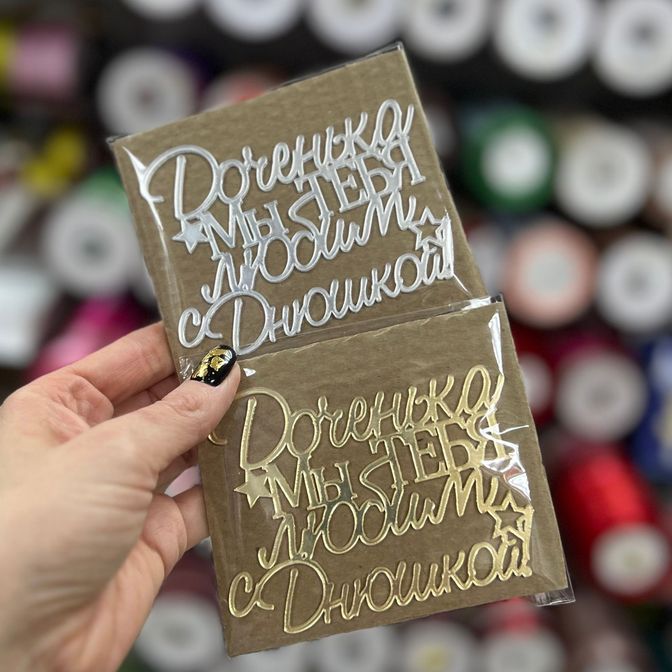 Доченька
МЫ ТЕБЯ
любим
с Днюшкой!
Доченька
МЫ ТЕБЯ
любим
с Днюшкой!